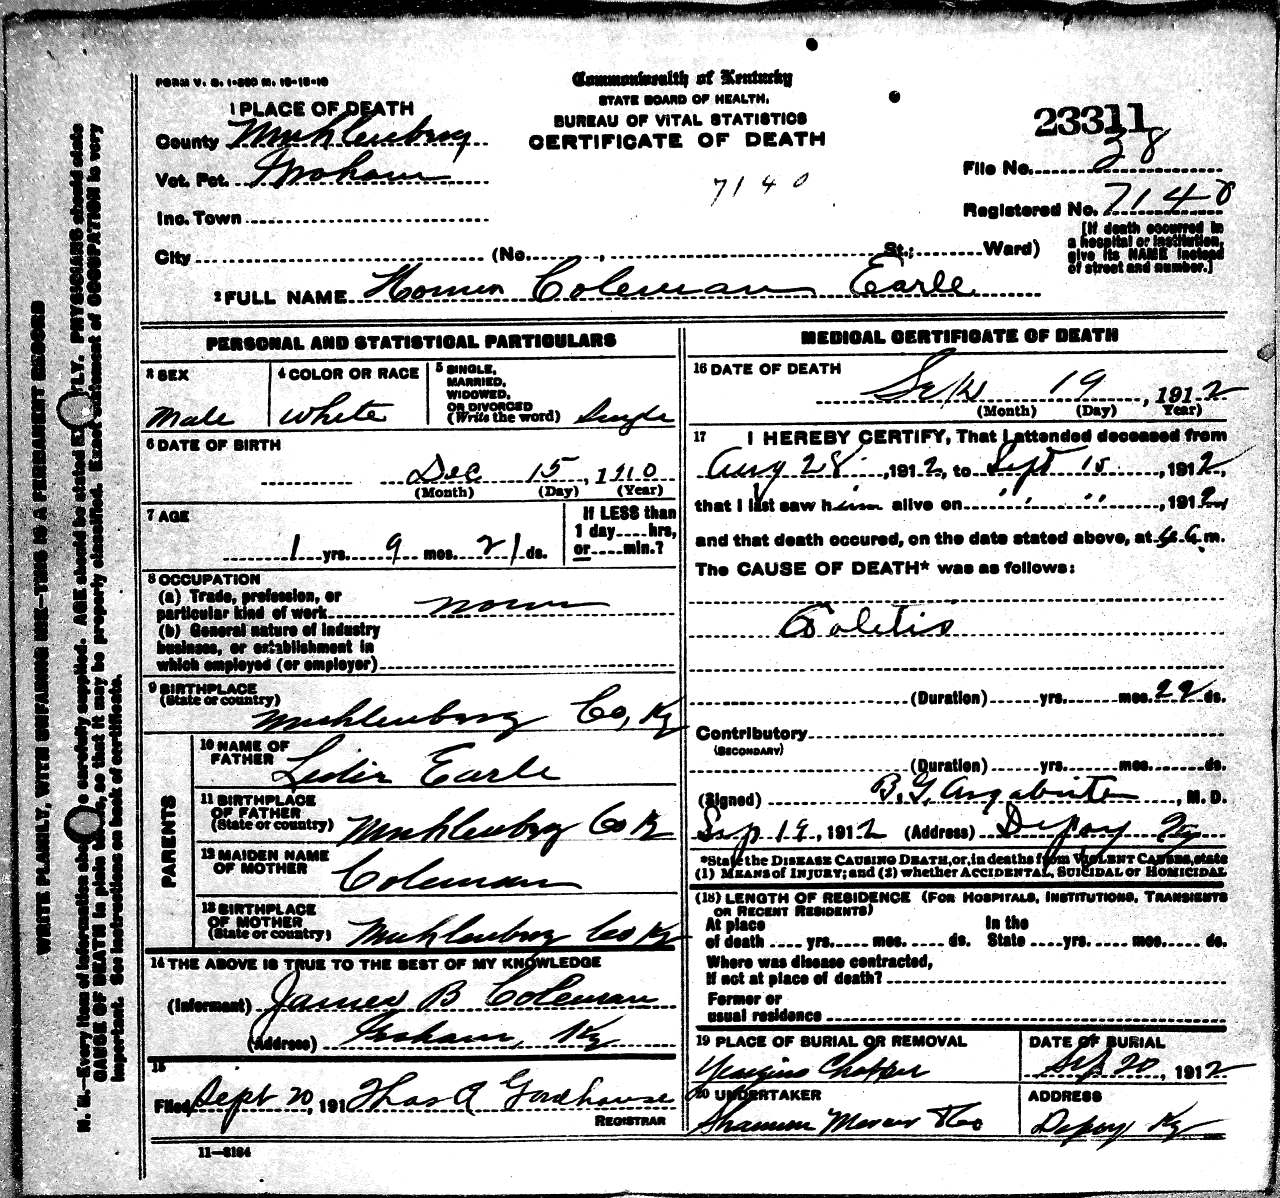 FORM V. S. 1-350 M. 10-18-10
Commonwealth of Kentucky
STATE BOARD OF HEALTH.
BUREAU OF VITAL STATISTICS
CERTIFICATE OF DEATH
23311
1 PLACE OF DEATH
County Muhlenburg
Vot. Pct. Graham
Inc. Town
City (No. , St.; Ward)
7140
File No. 38
Registered No. 7140
[If death occurred in
a hospital or institution,
give its NAME instead
of street and number.]
2 FULL NAME Homer Coleman Earle
PERSONAL AND STATISTICAL PARTICULARS
3 SEX
Male
4 COLOR OR RACE
White
5 SINGLE,
MARRIED,
WIDOWED,
OR DIVORCED
(Write the word) Single
6 DATE OF BIRTH
Dec 15, 1910
(Month) (Day) (Year)
7 AGE
1 yrs. 9 mos. 21 ds.
If LESS than
1 day....hrs,
or.....min.?
8 OCCUPATION
(a) Trade, profession, or
particular kind of work None
(b) General nature of industry
business, or establishment in
which employed (or employer)
9 BIRTHPLACE
(State or country)
Muhlenburg Co, Ky
PARENTS
10 NAME OF
FATHER Lester Earle
11 BIRTHPLACE
OF FATHER
(State or country) Muhlenburg Co Ky
12 MAIDEN NAME
OF MOTHER Coleman
13 BIRTHPLACE
OF MOTHER
(State or country) Muhlenburg Co Ky
14 THE ABOVE IS TRUE TO THE BEST OF MY KNOWLEDGE
(Informant) James B Coleman
(Address) Graham, Ky
15
Filed Sept 20, 191 Thos A Goodhouse
REGISTRAR
11—3184
MEDICAL CERTIFICATE OF DEATH
16 DATE OF DEATH
Sept 19, 1912
(Month) (Day) Year)
17 I HEREBY CERTIFY, That I attended deceased from
Aug 28, 1912, to Sept 15, 1912,
that I last saw him alive on " " , 1912,
and that death occured, on the date stated above, at m.
The CAUSE OF DEATH* was as follows:
Colitis
(Duration) yrs. mos. 22 ds.
Contributory
(SECONDARY)
(Duration) yrs. mos. ds.
(Signed) B. G. Argabrite, M. D.
Sep 19, 1912 (Address) Depoy Ky
*State the DISEASE CAUSING DEATH, or, in deaths from VIOLENT CAUSES, state
(1) MEANS OF INJURY; and (2) whether ACCIDENTAL, SUICIDAL OR HOMICIDAL
(18) LENGTH OF RESIDENCE (FOR HOSPITALS, INSTITUTIONS, TRANSIENTS
OR RECENT RESIDENTS)
At place In the
of death .... yrs..... mos. .... ds. State ....yrs..... mos. .... ds.
Where was disease contracted,
If not at place of death?
Former or
usual residence
19 PLACE OF BURIAL OR REMOVAL
Chapper
DATE OF BURIAL
Sep 20, 1912
20 UNDERTAKER
Shannon Mercer &Co
ADDRESS
Depoy Ky
WRITE PLAINLY, WITH UNFADING INK—THIS IS A PERMANENT RECORD
N. B.—Every item of information should be carefully supplied. AGE should be stated EXACTLY. PHYSICIANS should state
CAUSE OF DEATH in plain terms, so that it may be properly classified. Exact statement of OCCUPATION is very
important. See instructions on back of certificate.